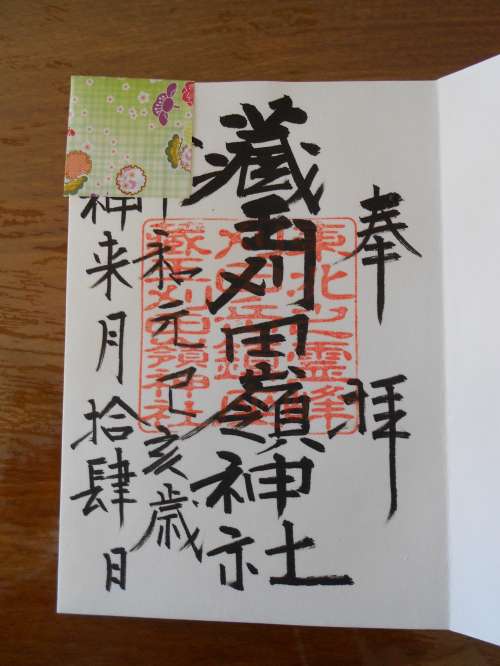 奉拝
東北之霊峰
藏王刈田嶺神社
藏王刈田嶺神社
令和元己亥歳
神来月拾肆日